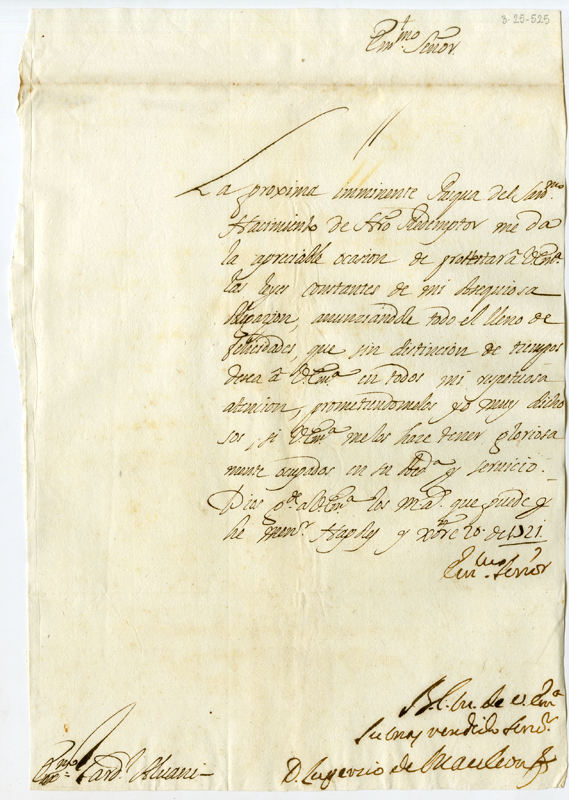 3-25-525
Em.mo Señor
La proxima imminente Pasqua del Sant.mo
Nacimiento de Nro Redemptor me da
la apreciable ocasion de protestar â V.Em.a
las leyes constantes de mi obsequiosa
anunciandole todo el lleno de
felicidades, que sin distincion de tiempos
desea â V.Em.a en todos mi respetuosa
atencion, prometiendomelos yo muy dicho
sos, si V.Em.a me los haze tener gloriosa
mente ocupados en su y servicio.
Dios g.de a V.Em.a los m.a.s que puede y
he men.r Naples y Xbre 20 de 1721
Em.mo Señor
B.l.m. de V.Em.a
su mas rendido serv.r
D. Lupercio de Mauleon
Em.mo S.r Card.l Albani